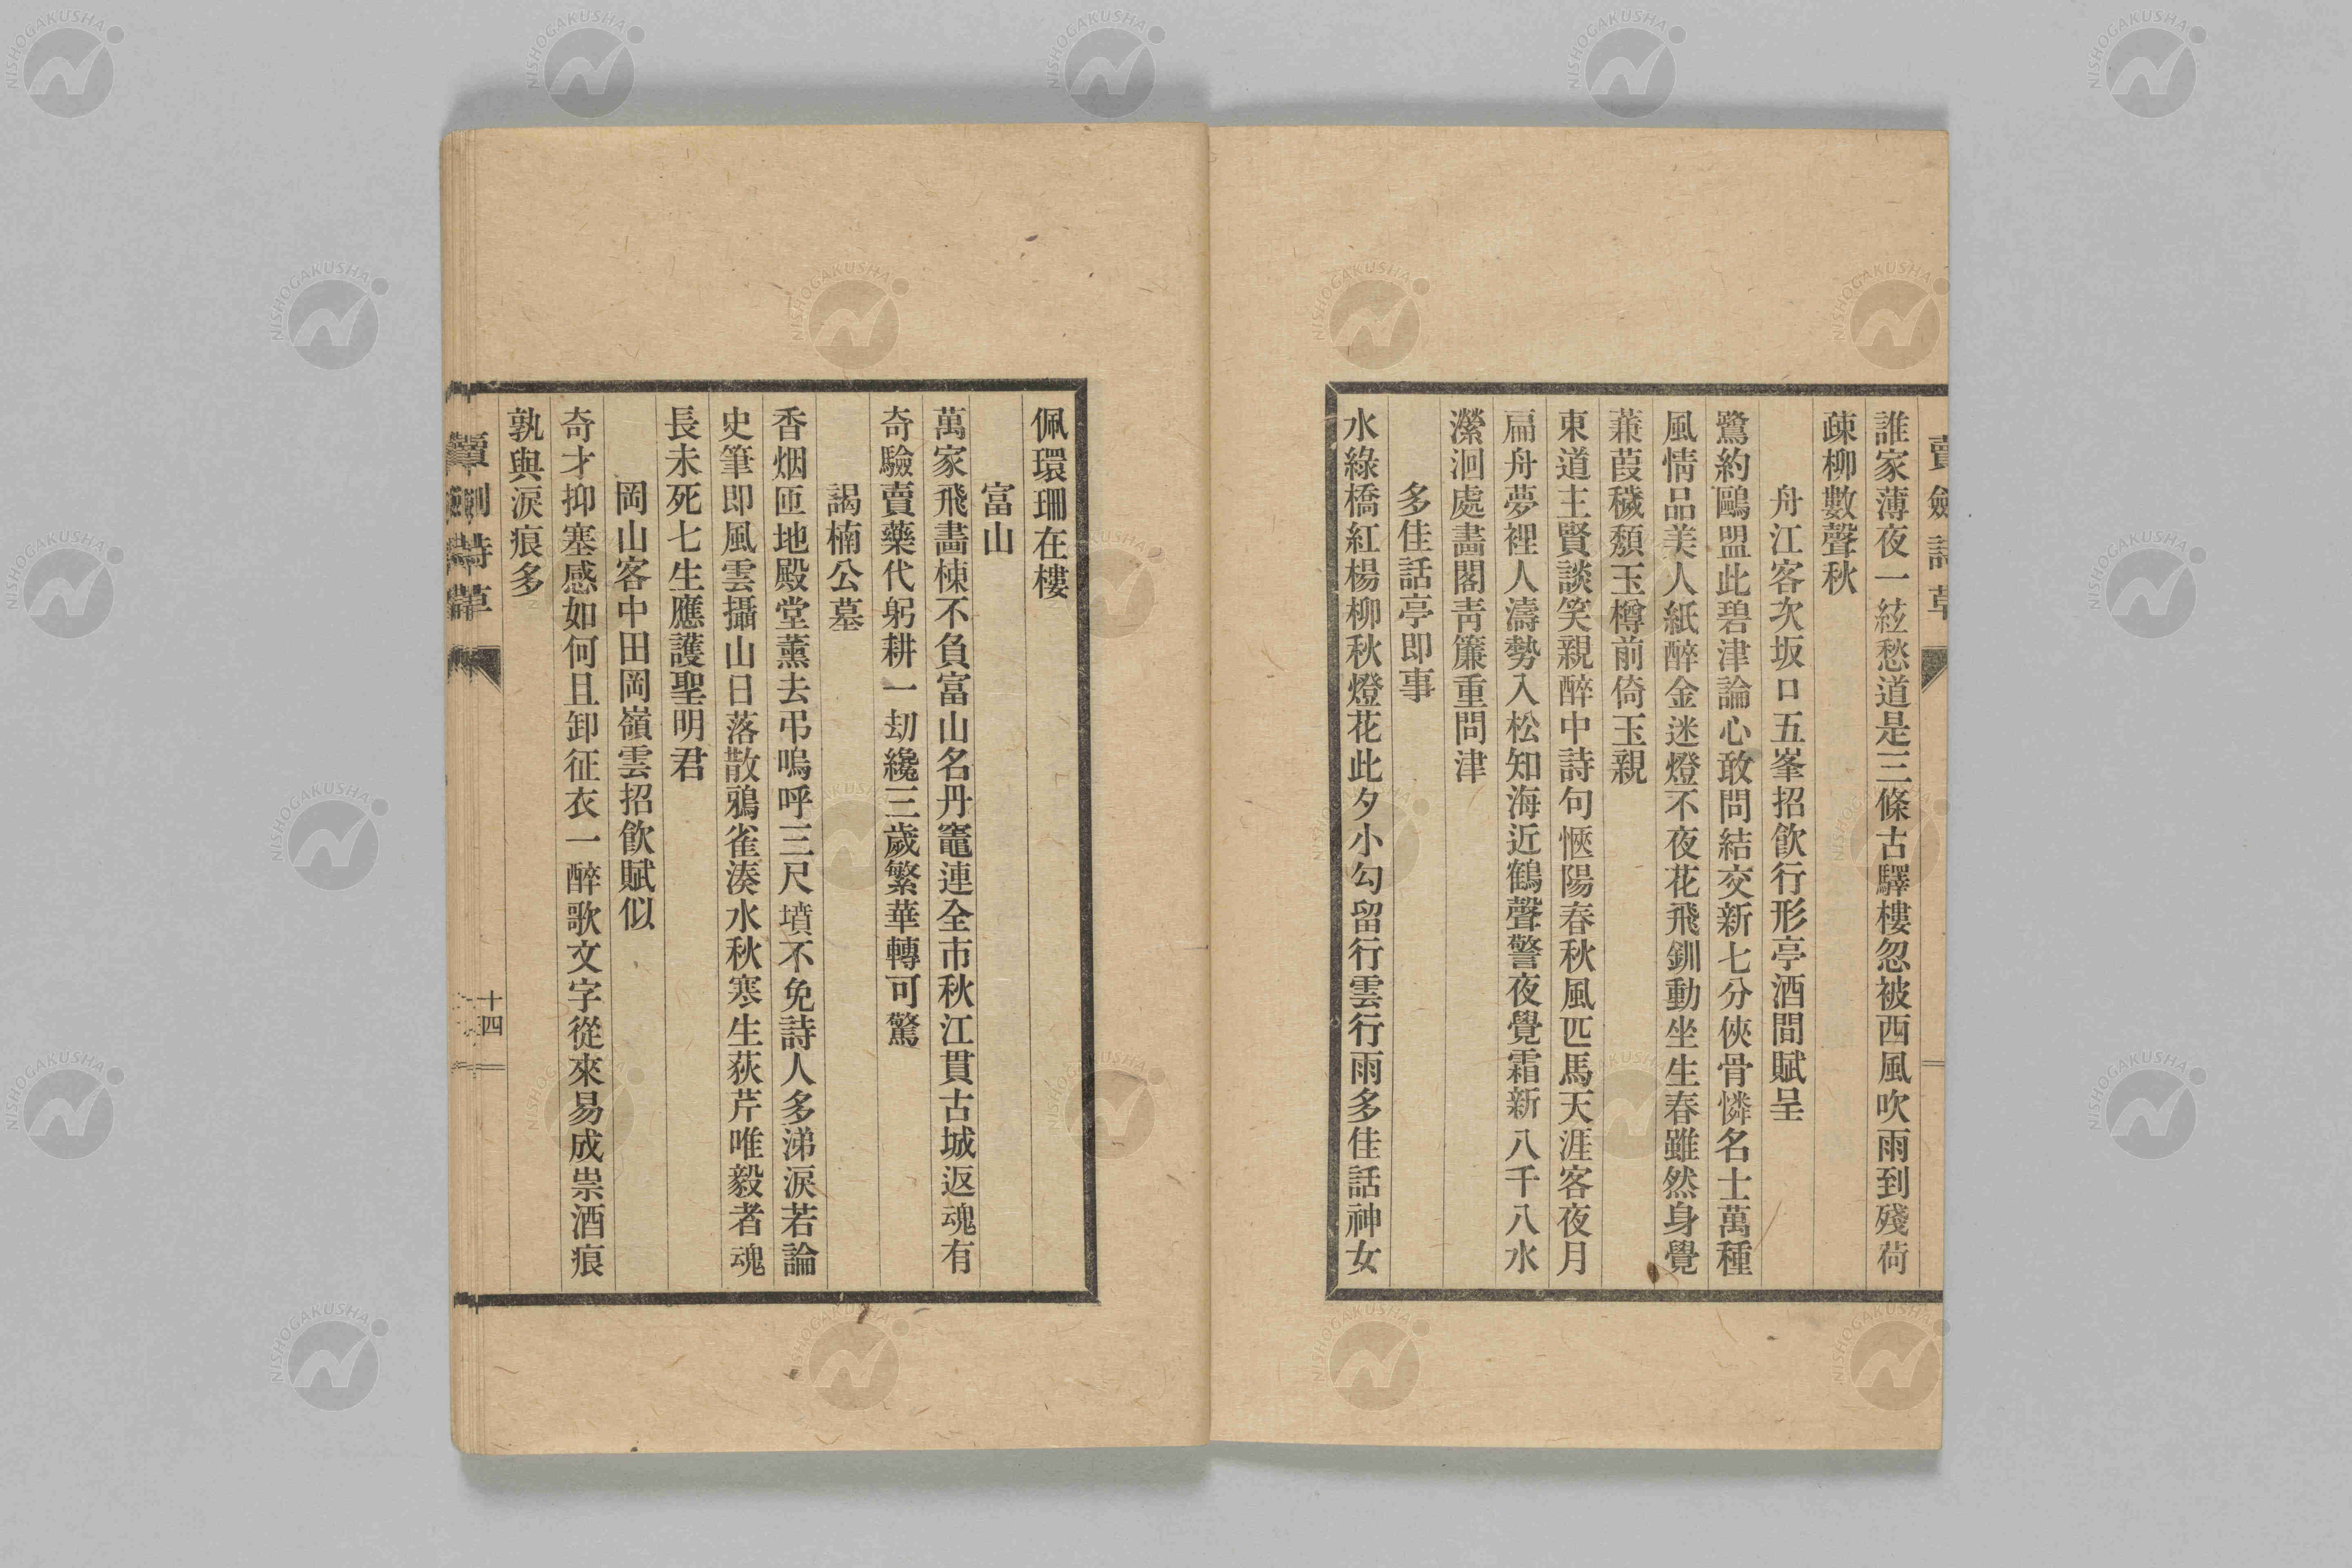 賣劍詩草
誰家薄夜一絃愁道是三條古驛樓忽被西風吹雨到殘荷
疎柳數聲秋
舟江客次坂口五峯招飮行形亭酒間賦呈
鷺約鷗盟此碧津論心敢問結交新七分俠骨憐名士萬種
風情品美人紙醉金迷燈不夜花飛釧動坐生春雖然身覺
蒹葭穢頽玉樽前倚玉親
東道主賢談笑親醉中詩句愜陽春秋風匹馬天涯客夜月
扁舟夢裡人濤勢入松知海近鶴聲警夜覺霜新八千八水
瀠洄處畵閣靑簾重問津
多佳話亭即事
水綠橋紅楊柳秋燈花此夕小勾留行雲行雨多佳話神女
佩環珊在樓
富山
萬家飛畵棟不負富山名丹竈連全市秋江貫古城返魂有
奇驗賣藥代躬耕一刧纔三歲繁華轉可驚
謁楠公墓
香烟匝地殿堂薰去弔嗚呼三尺墳不免詩人多涕淚若論
史筆即風雲攝山日落散鴉雀湊水秋寒生荻芹唯毅者魂
長未死七生應護聖明君
岡山客中田岡嶺雲招飮賦似
奇才抑塞感如何且卸征衣一醉歌文字從來易成祟酒痕
孰與淚痕多
賣劍詩草
十四
NISHOGAKUSHA